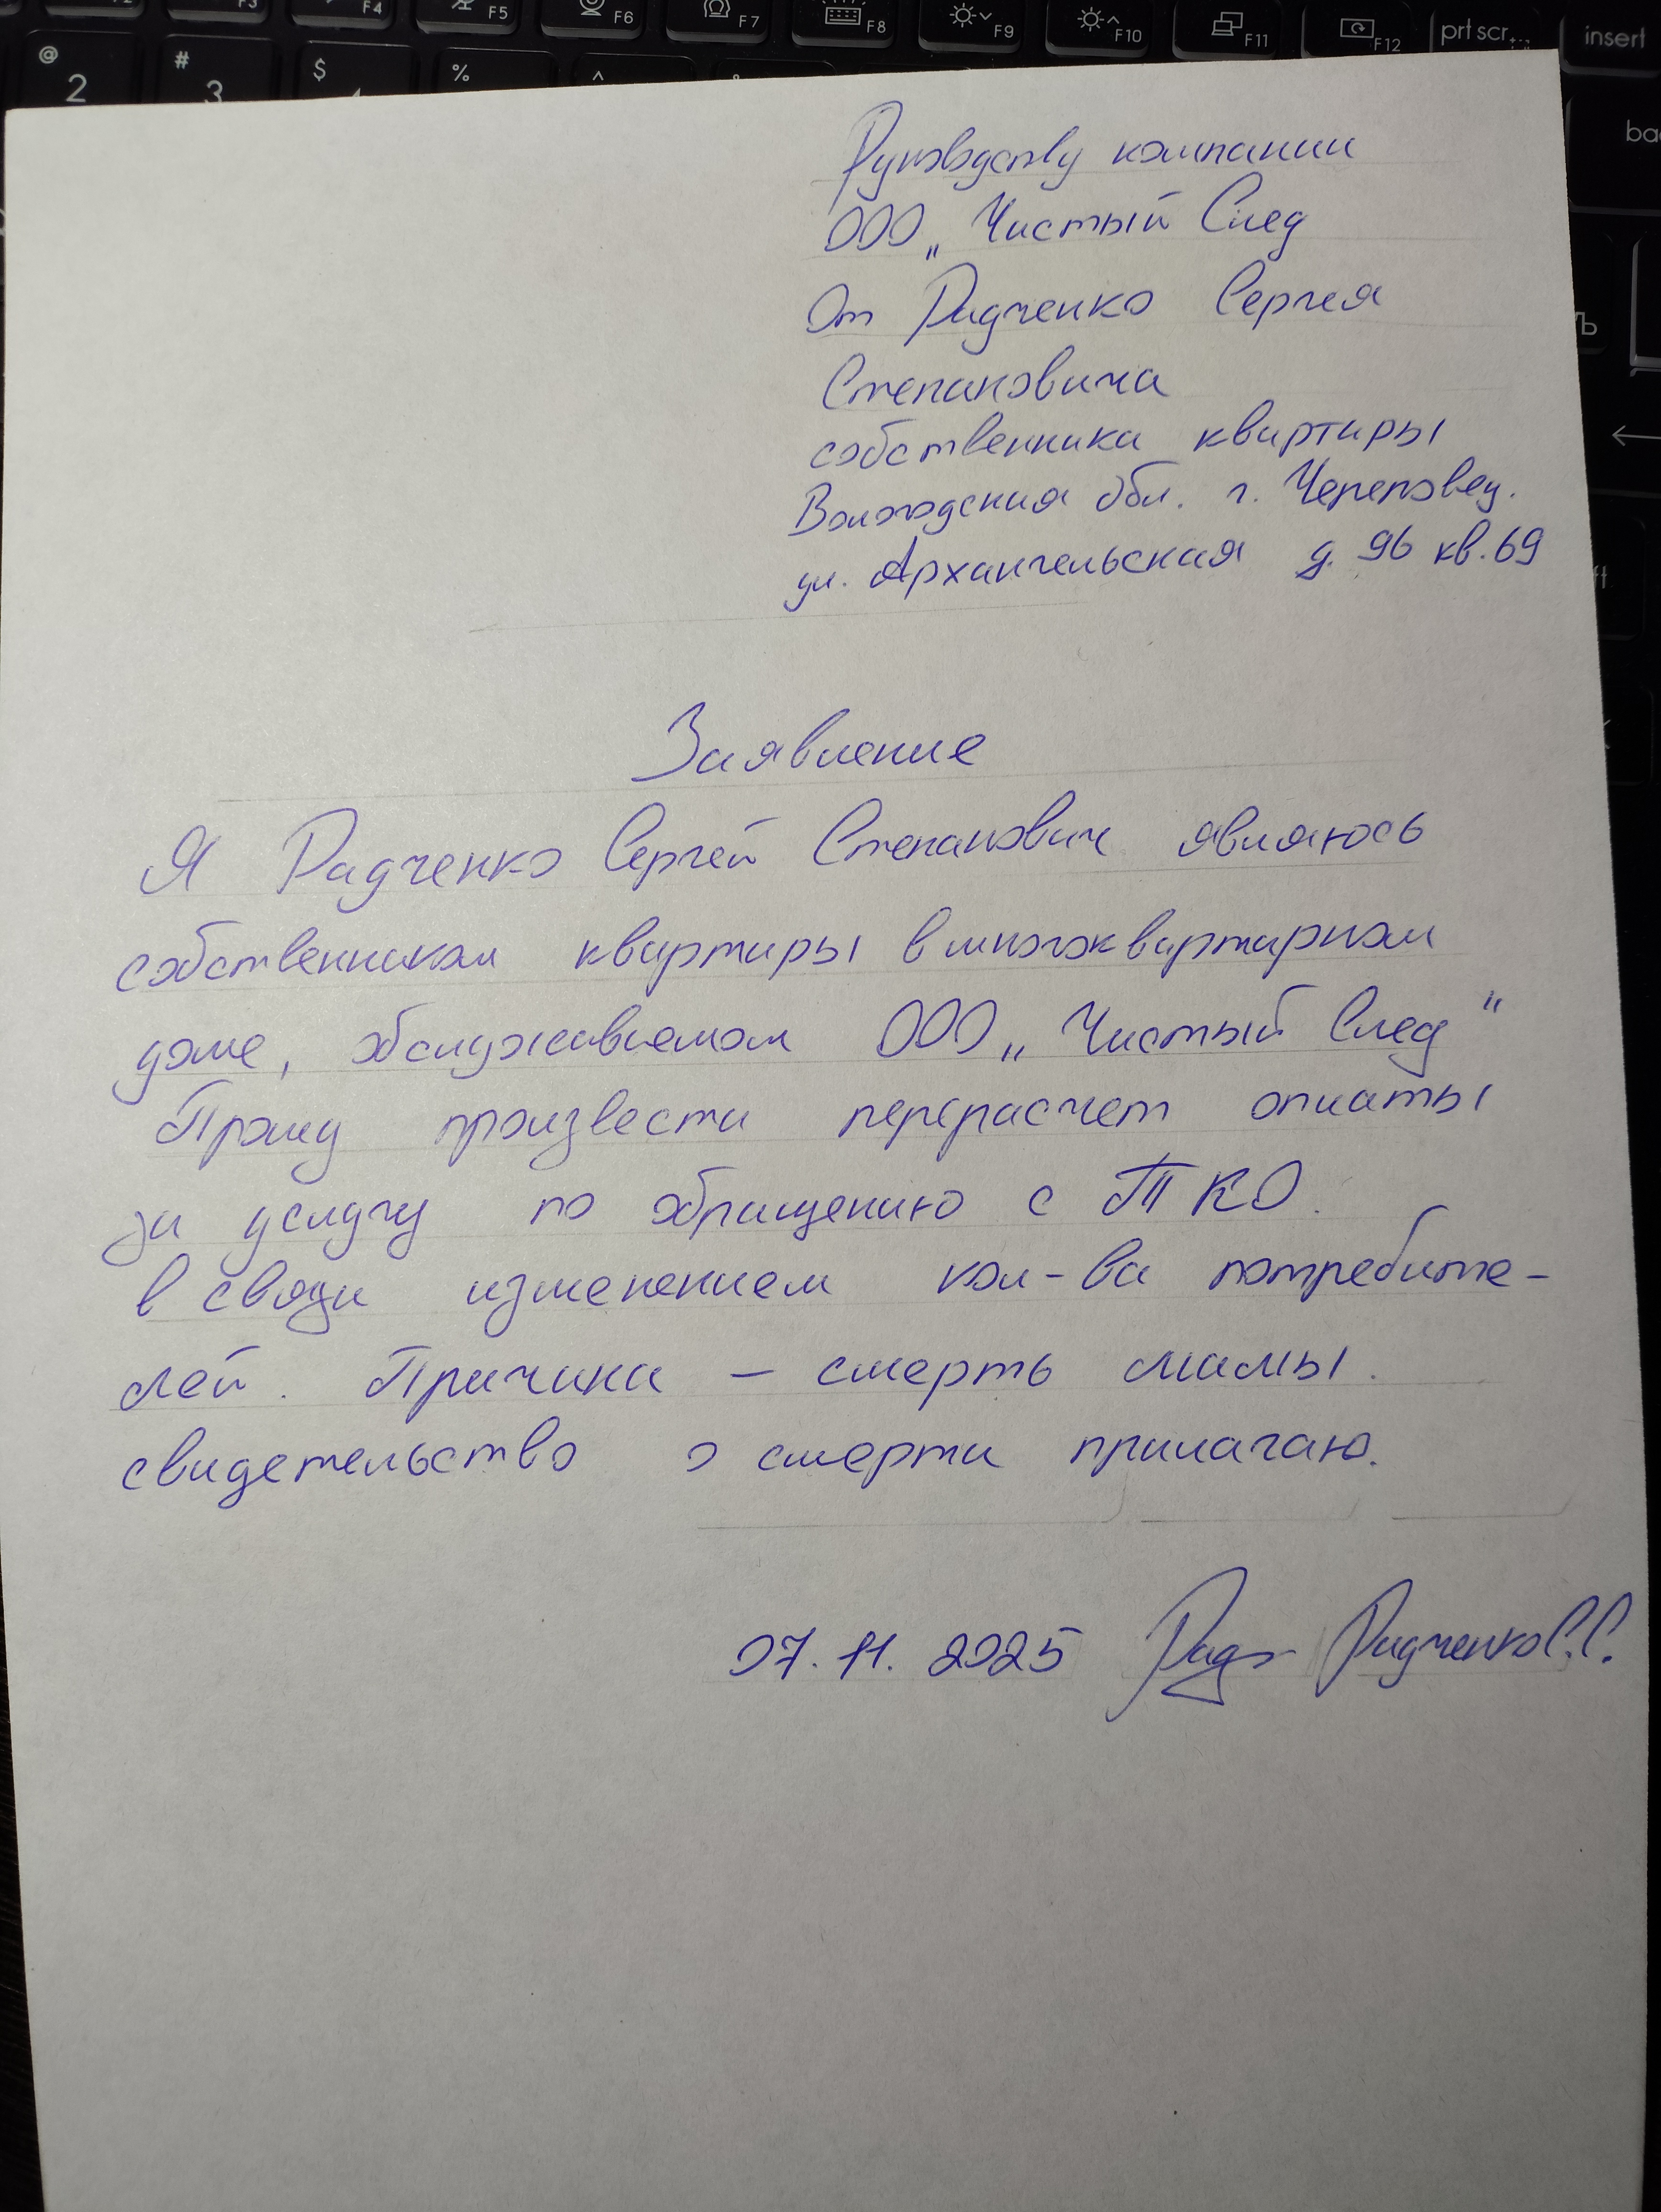 F3 F4 F5 F6 F7 F8 F9 F10 F11 F12 prt scr insert
@ 2 # 3 $ % ^
Руководству компании
ООО „Чистый След
От Радченко Сергея
Степановича
собственника квартиры
Вологодская обл. г. Череповец.
ул. Архангельская д. 96 кв. 69
Заявление
Я Радченко Сергей Степанович являюсь
собственником квартиры в многоквартирном
доме, обслуживаемом ООО „Чистый След“
Прошу произвести перерасчет оплаты
за услугу по обращению с ТКО.
в связи изменением кол-ва потребите-
лей. Причина – смерть мамы.
свидетельство о смерти прилагаю.
07.11.2025 Радченко С.С.